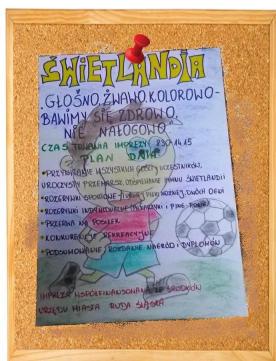 ŚWIETLANDIA
"GŁOŚNO, ŻWAWO, KOLOROWO-
BAWIMY SIĘ ZDROWO,
NIE NAŁOGOWO"
CZAS TRWANIA IMPREZY: 8.30-14.15
PLAN DNIA:
• PRZYWITANIE WSZYSTKICH GOŚCI, UCZESTNIKÓW,
UROCZYSTY PRZEMARSZ, ODŚPIEWANIE HYMNU ŚWIETLANDII
• ROZGRYWKI SPORTOWE PIŁKI NOŻNEJ, DWÓCH OGNI
• ROZGRYWKI INDYWIDUALNE
• PRZERWA NA POSIŁEK
• KONKURENCJE REKREACYJNE
• PODSUMOWANIE, ROZDANIE NAGRÓD I DYPLOMÓW
IMPREZA WSPÓŁFINANSOWANA ZE ŚRODKÓW
URZĘDU MIASTA RUDA ŚLĄSKA